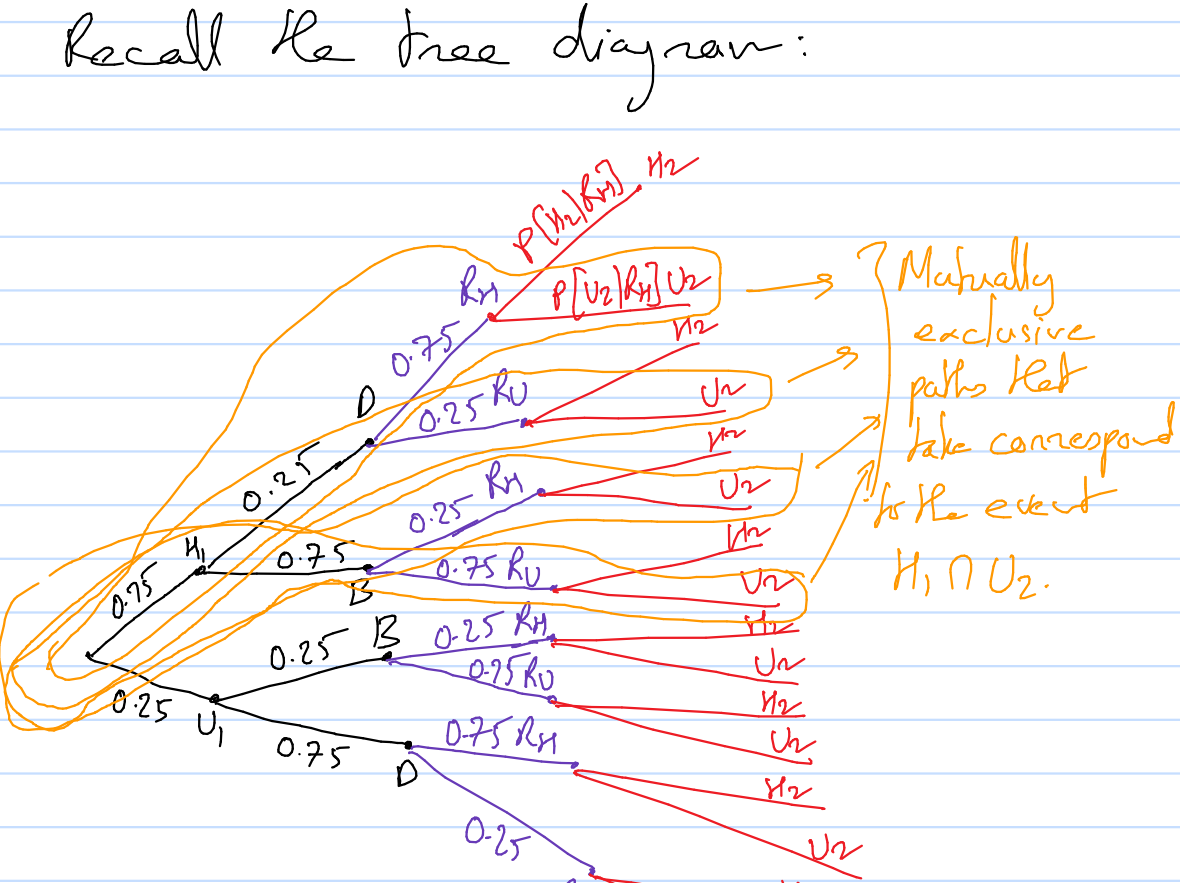 Recall the tree diagram:
H2
P[H2|RH]
RH
P[U2|RH] U2
H2
0.75
D
0.25 RU
U2
H2
0.25
RH
U2
0.25
H2
H1
0.75
0.75
B
0.75 RU
U2
H2
0.25
B
0.25 RH
U2
0.75 RU
H2
0.25
U1
U2
0.75
D
0.75 RH
H2
0.25
U2
Mutually
exclusive
paths that
take correspond
to the event
H1 ∩ U2.